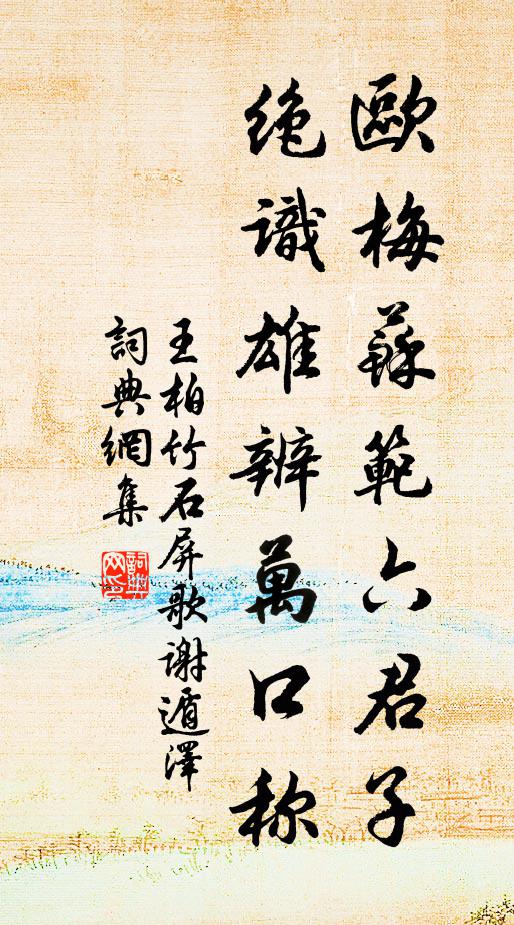 歐梅蘇範六君子
絶識雄辨萬口称
王柏竹石屏歌謝遁澤
詞典網集